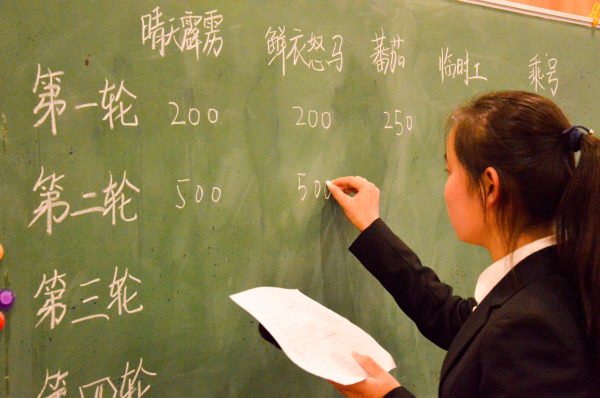 晴天霹雳 鲜衣怒马 蕃茄 临时工 乘号
第一轮 200 200 250
第二轮 500 500
第三轮
第四轮